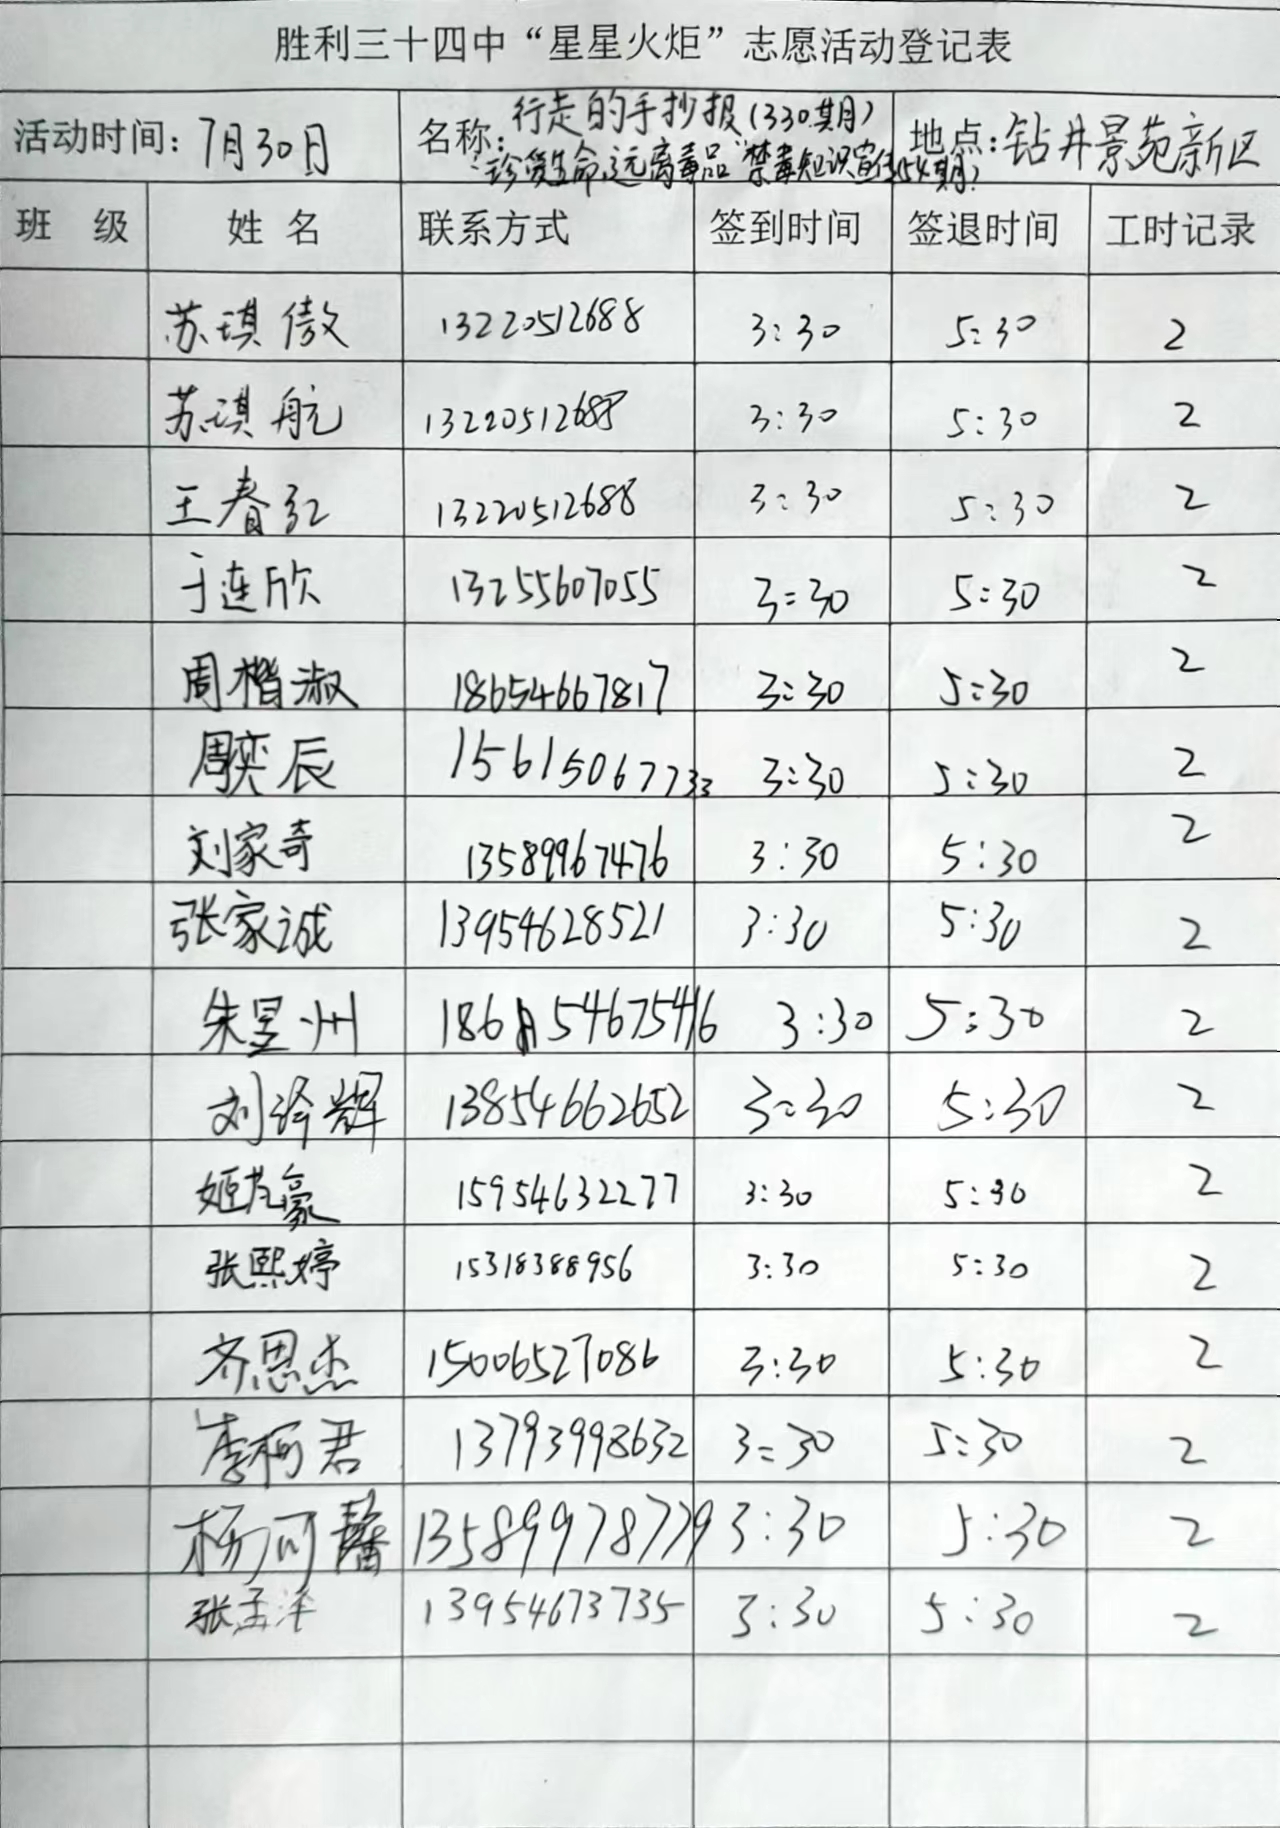 胜利三十四中“星星火炬”志愿活动登记表
活动时间: 7月30日 名称: 行走的手抄报(330期) 地点: 钻井景苑新区
“珍爱生命,远离毒品”禁毒知识宣传(54期)
班 级 姓 名 联系方式 签到时间 签退时间 工时记录
苏琪傲 13220512688 3:30 5:30 2
苏琪航 13220512688 3:30 5:30 2
王春红 13220512688 3:30 5:30 2
于连欣 13255607055 3:30 5:30 2
周楷淑 18654667817 3:30 5:30 2
周奕辰 15615067733 3:30 5:30 2
刘家奇 13589967476 3:30 5:30 2
张家诚 13954628521 3:30 5:30 2
朱昱州 18654675416 3:30 5:30 2
刘泽辉 13854662652 3:30 5:30 2
姬 豪 15954632277 3:30 5:30 2
张熙婷 15318388956 3:30 5:30 2
齐思杰 15006527086 3:30 5:30 2
李柯君 13793998632 3:30 5:30 2
杨可馨 13589978779 3:30 5:30 2
张孟洋 13954673735 3:30 5:30 2